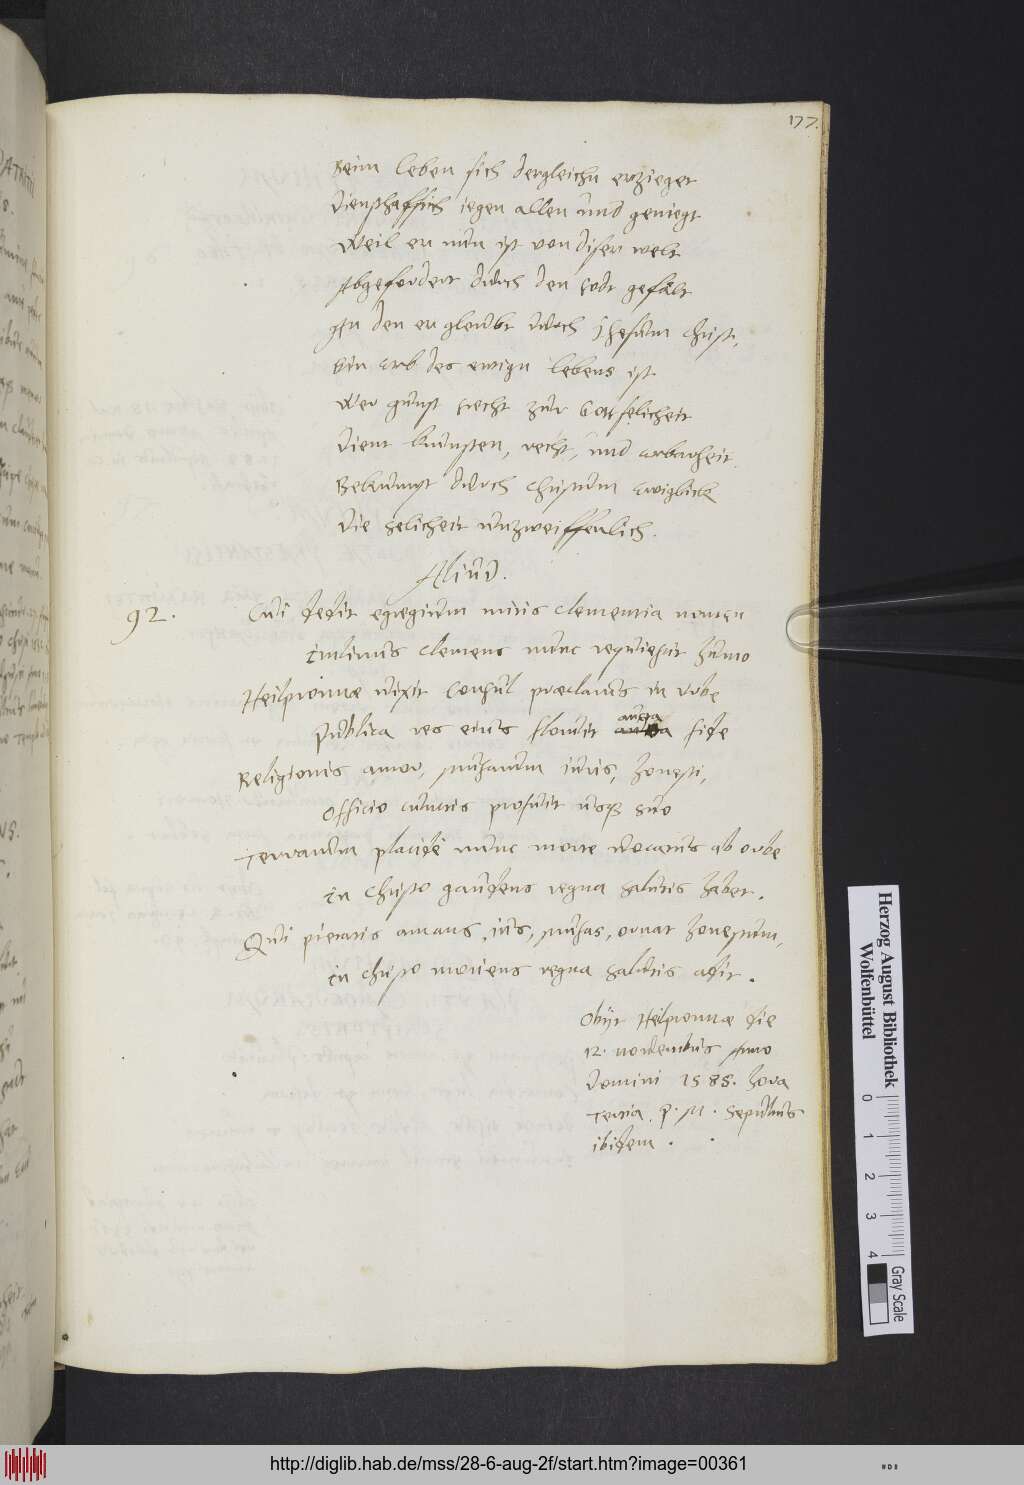 177.
Beim leben sich dergleichn erzieget
Diensthafftich iegen allen und geniegt
Weil er nun ist von diser welt
Abgefordert durch den todt gefält
In den er gleubt durch Jhesum Christ,
Ein erb des ewign lebens ist
Wer gunst recht zur Gottselicheit
Dient kunsten, recht, und erbarheit
Bekumpt durch Christum ewiglich
Die selicheit unzweiffenlich.
Aliud.
92.
Cui dedit egregium mitis clementia nomen
Imlinus Clemens nunc requiescit humo
Heilpronnæ vixit Consul præclarus in urbe
Publica res eius floruit aucta fide
Religionis amor, musarum iuris, honesti,
Officio cunctis profuit usq suo
Terrarum placide nunc morte vocatus ab orbe
in Christo gaudens regna salutis habet.
Qui pietatis amans, ius, musas, ornat honestum,
in Christo moriens regna salutis adit.
Obijt Heilpronnæ die
12. novembris Anno
Domini 1585. hora
tertia. P. M. Sepultus
ibidem.
Herzog August Bibliothek
Wolfenbüttel
0 1 2 3 4
Gray Scale
http://diglib.hab.de/mss/28-6-aug-2f/start.htm?image=00361